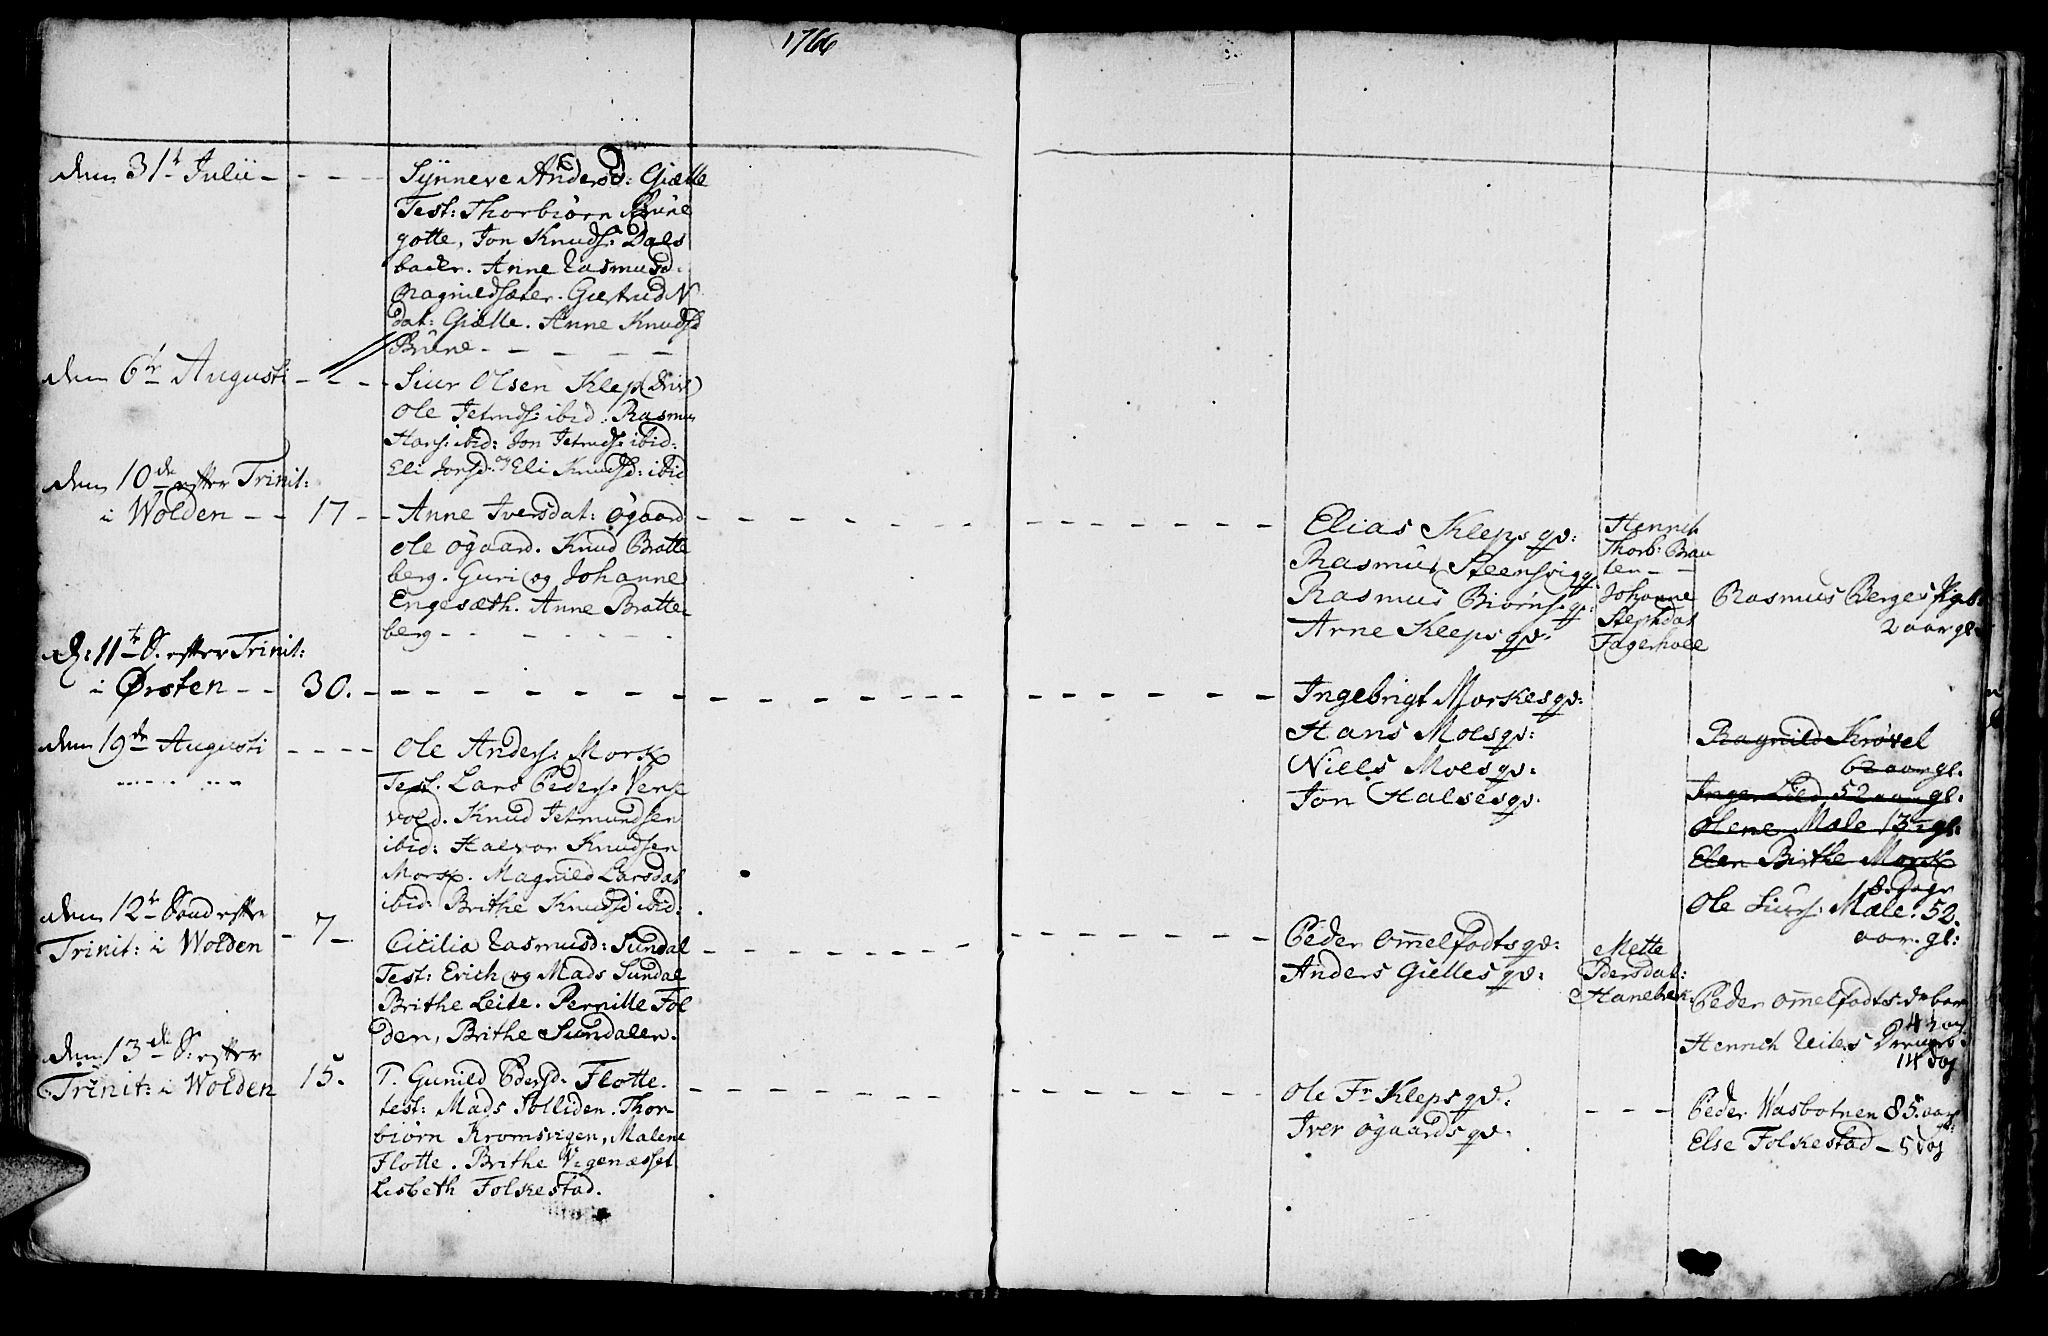 1766
den 31t Julii - - - -
Sÿnneve Andersd: Giælle
Test: Thorbiörn Brüne
gotte, Jon Knuds: Dals
bader. Anne Rasmusd:
Ragnildsæter. Giertrud N
dat: Giælle. Anne Knudsd
Brüne - - - - -
den 6te Augusti - - -
Siur Olsen Klep
Ole Jetmds: ibid: Rasmus
Hans: ibid: Jon Jetmds: ibid:
Eli Jonsd: og Eli Knudsd: ibid
den 10de efter Trinit:
i Wolden - - 17 - -
Anne Iversdat: Ögaard
Ole Ögaard. Knud Bratte
berg. Guri og Johanne
Engesæth. Anne Bratte-
berg - - - - - -
Elias Kleps qv:
Rasmus Steensvig qv
Rasmus Biörns qv:
Arne Kleps qv:
Henrich
Thorb: Brau
ten - -
Johanne
Stephdat
Fagerhoel
Rasmus Berges
2 aar gl:
D: 11te S. efter Trinit:
i Ørsten - - 30. - - - -
Ingebrigt Morkes qv:
Hans Moes qv:
Niels Moes qv:
Jon Halses qv:
den 19de Augusti - - - -
Ole Anders: Mork
Test. Lars Peders: Vers
vold. Knud Jetmundsen
ibid: Halvor Knudsen
Mork. Magnild Larsdat
ibid: Brithe Knudsd ibid:
Ragnild Krövel
62 aar gl.
Inger Lied 52 aar gl:
Olene Mæle 13 gl:
Elen Birthe Mork
8. Dage
Ole Siurs: Mæle. 52.
aar. gl:
den 12te Sond efter
Trinit: i Wolden - 7 -
Cicilia Rasmusd: Sundal
Test: Erich og Mads Sundal
Brithe Leite. Pernille Fol
den, Brithe Sundalen.
Peder Ommelfodts qv:
Anders Gielles qv:
Mette
Pdersdat:
Hanebek.
Peder Ommelfodts
Henrich
14 Dag
den 13de S: efter
Trinit: i Wolden 15.
T. Gunild Pdersd: Flotte.
test: Mads Solliden. Thor-
biörn Kromsvigen, Malene
Flotte. Brithe Vigenæsset
Lisbeth Folkestad.
Ole Fr Kleps qv:
Iver Ögaards qv:
Peder Wasbotnen 85. aar
gl:
Else Folkestad - 5 Dag